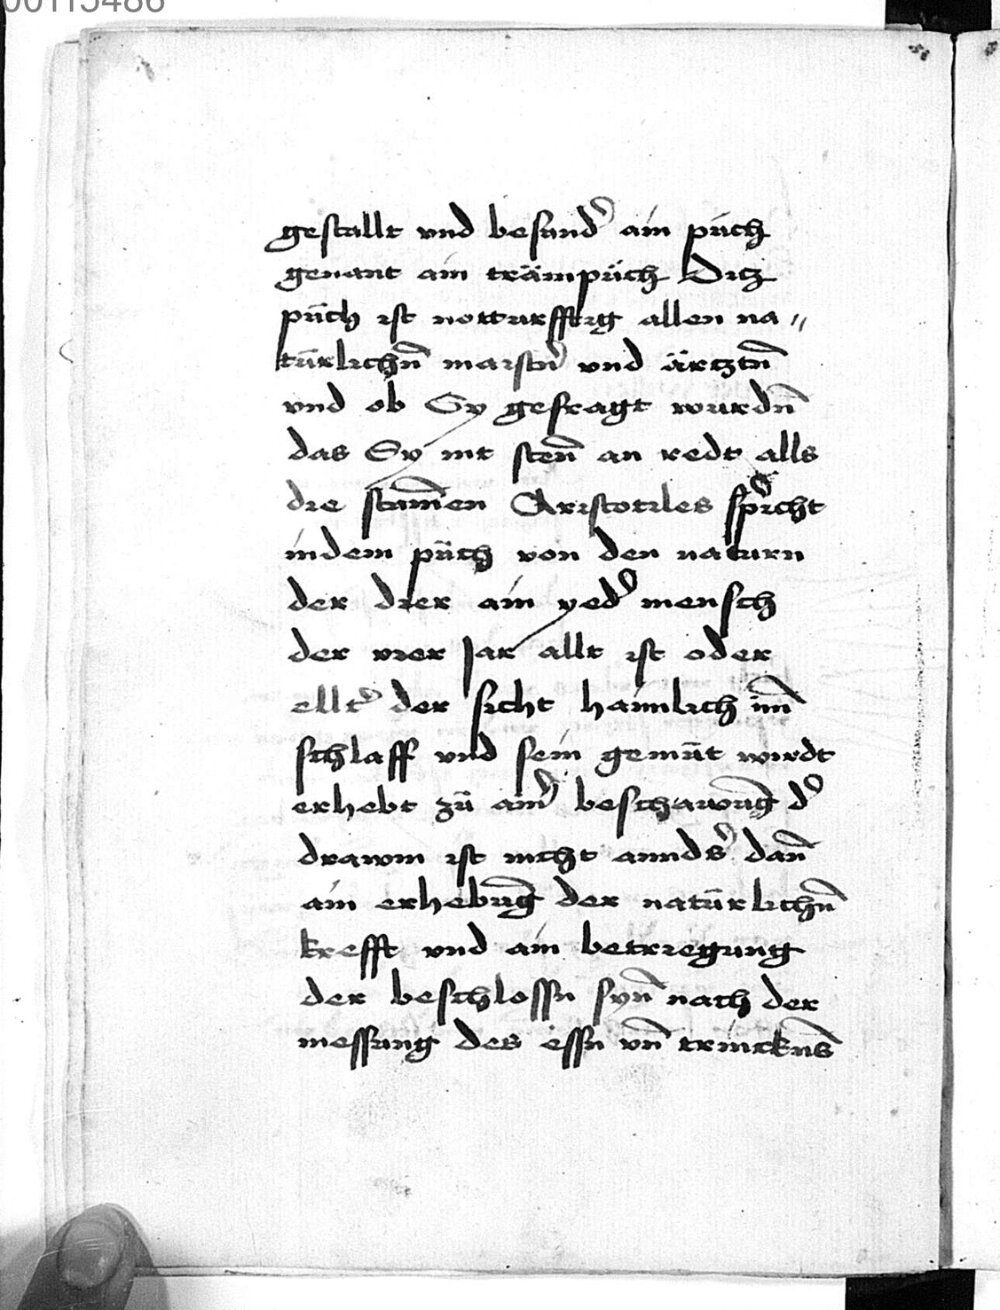 00115486
gestallt vnd besund&#x27; ain půch
genant ain trämpůch Ditz
půch ist notturfftig allen na〃
türlichn̄ maistn̄ vnd ärtztn̄
vnd ob Sy gefragt wurdn̄
das Sy nit sten̄ an redt alls
die stūmen Aristotiles spͥcht
indem půch von den naturn
der dier ain yed&#x27; mensch
der vier Jar allt ist oder
ellt&#x27; der sicht hainlich im̄
schlaff vnd sein gemüt wirdt
erhebt zů ain&#x27; beschawūg d&#x27;
drawm ist nicht annd&#x27;s dan̄
ain erhebūg der natürlichn̄
krefft vnd ain betriegung
der beschlossn syn̄ nach der
messung des essn vn̄ trinckn̄s